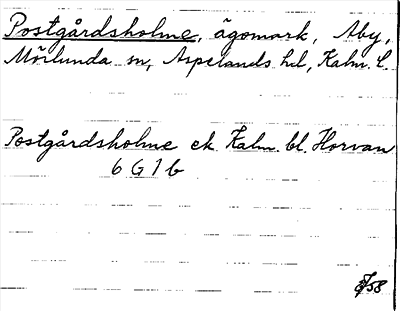 Postgårdsholme, ägomark, Åby,
Mörlunda sn, Aspelands hd, Kalm. l.
Postgårdsholme ek. Kalm. bl. Horvan
6 G 1 b